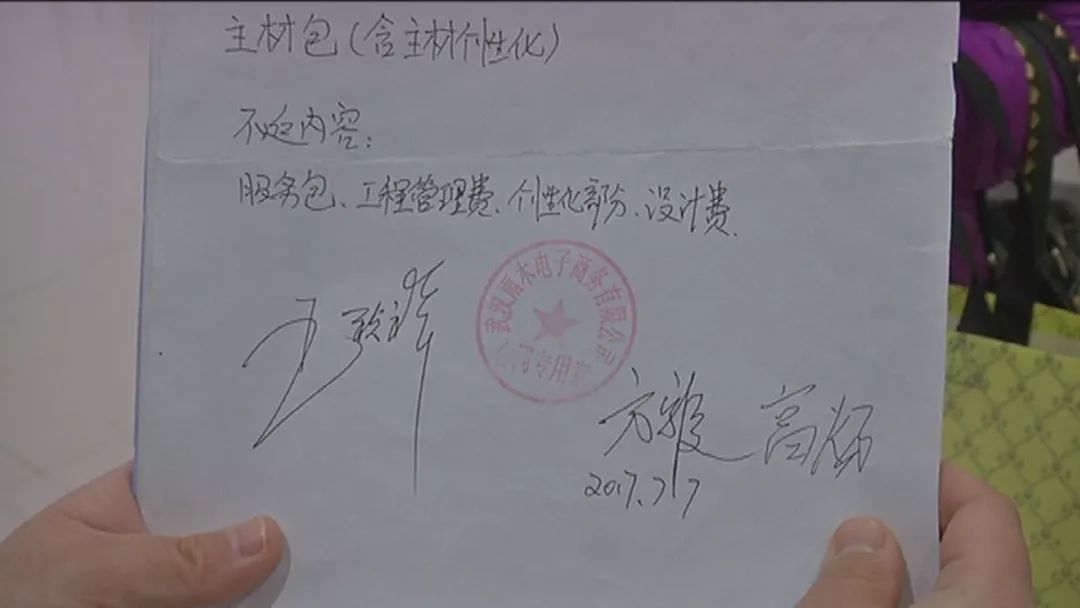 主材包(含主材个性化)
不返内容:
服务包、工程管理费、个性化部分、设计费.
武汉雨木电子商务有限公司
合同专用章
2017.7.7